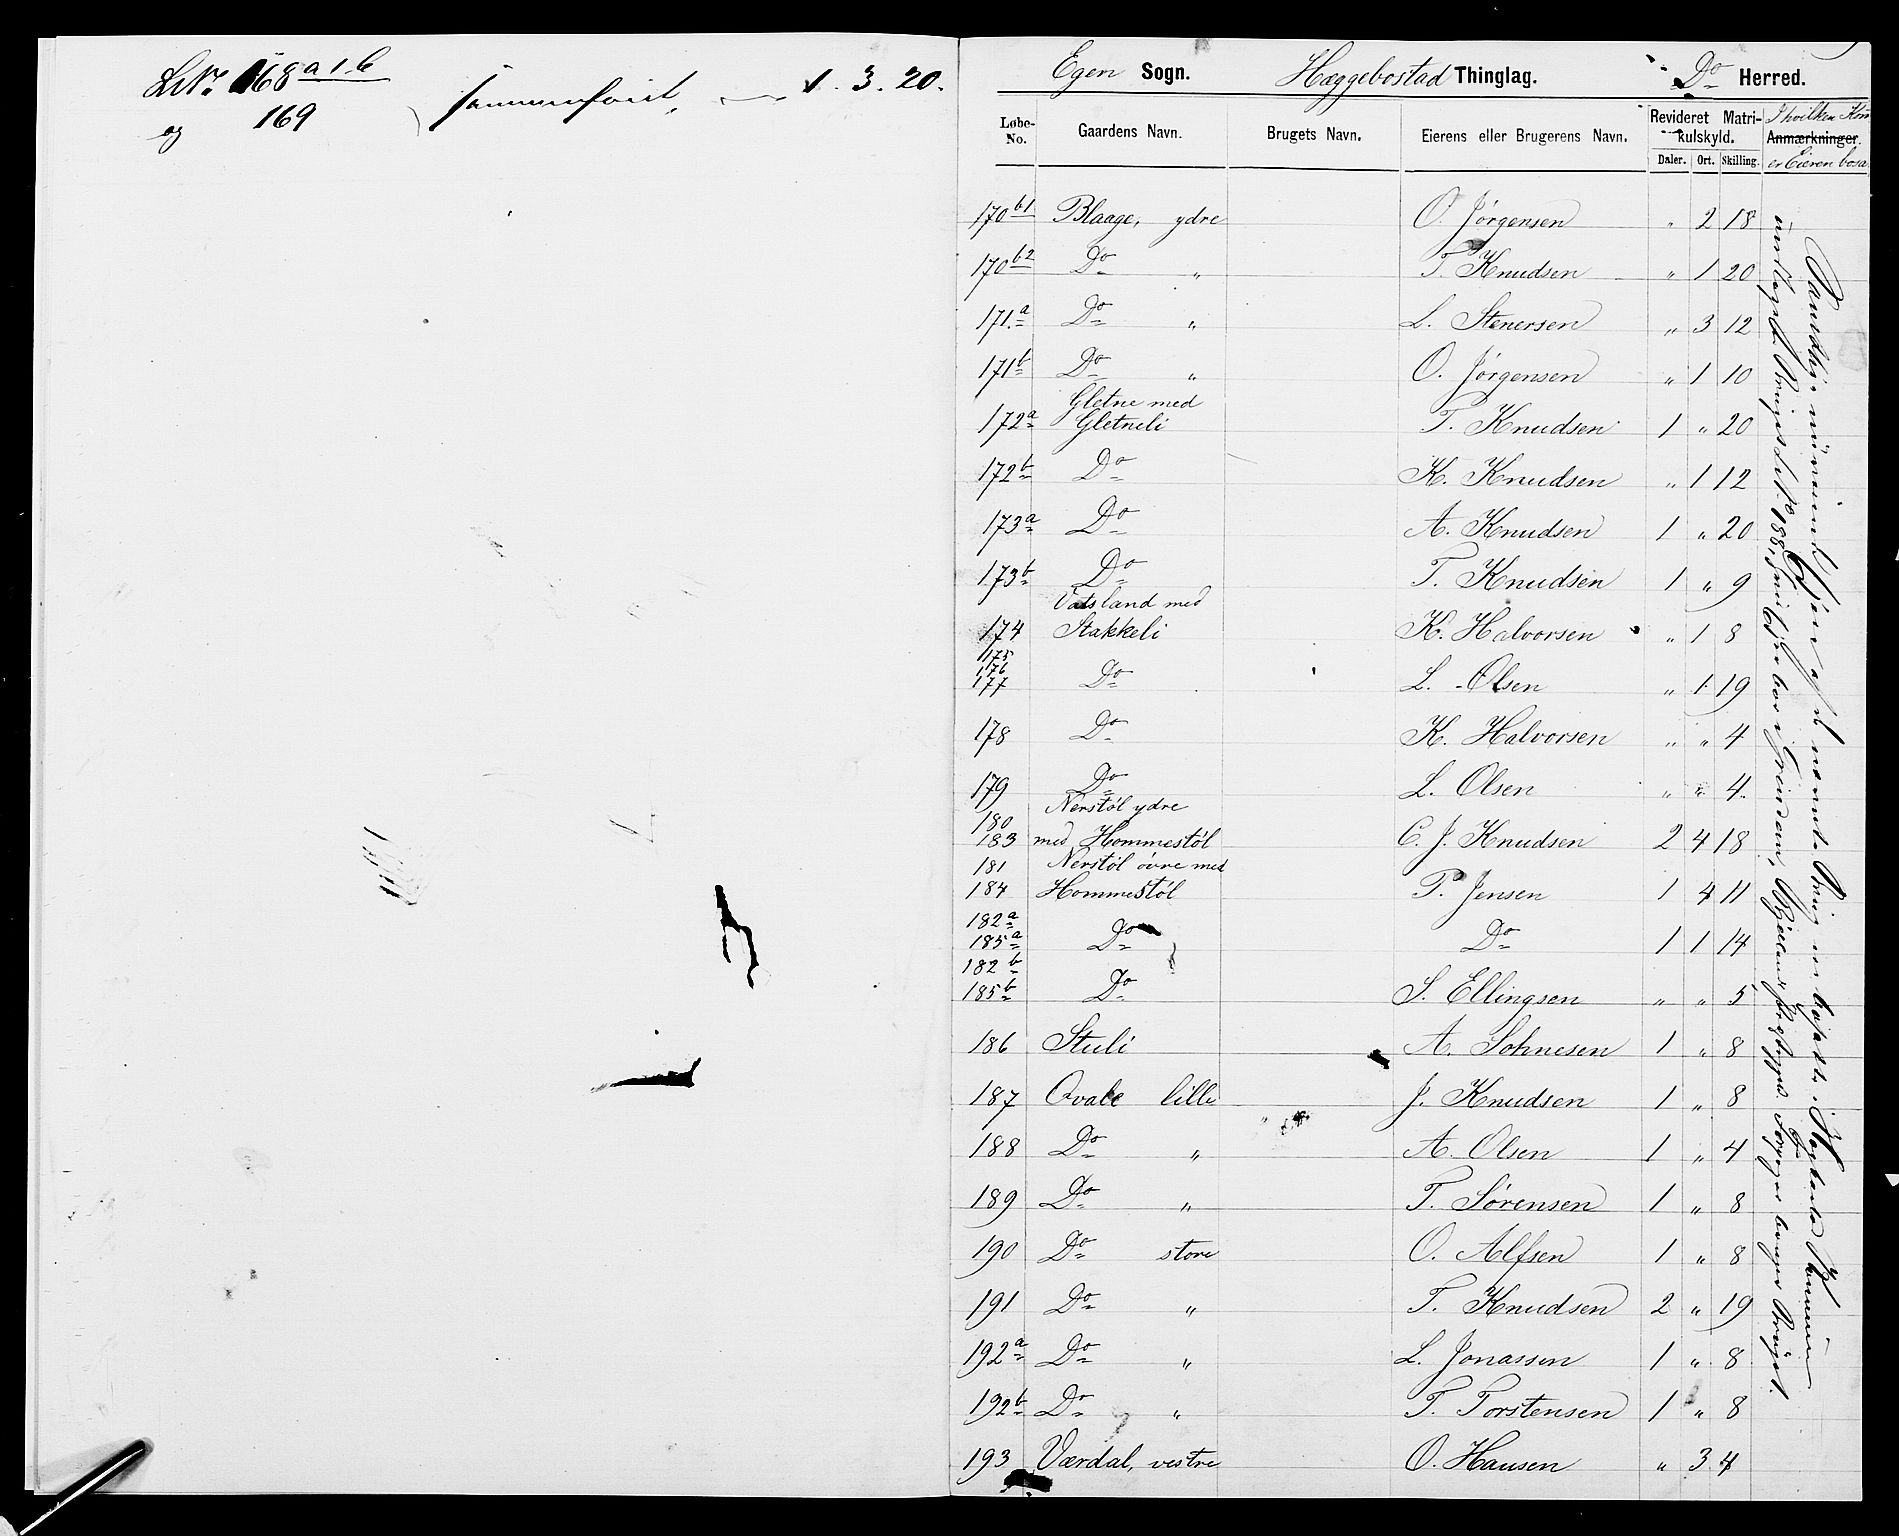 LNr. 168 a 1. b
og 169 sammenføiet, — 1. 3. 20.
Egen Sogn. Hæggebostad Thinglag. Do Herred.
Løbe-No. Gaardens Navn. Brugets Navn. Eierens eller Brugerens Navn. Revideret Matrikulskyld. Anmærkninger.
I hvilken Kom
er Eieren bosa
Daler. Ort. Skilling.
170 b1 Blaage, ydre O. Jørgensen " 2 18
170 b2 Do " T. Knudsen " 1 20
171 a Do " L. Stenersen " 3 12
171 b Do " O. Jørgensen " 1 10
Gletne med
172 a Gletneli T. Knudsen 1 " 20
172 b Do K. Knudsen " 1 12
173 a Do A. Knudsen 1 " 20
173 b Do T. Knudsen 1 " 9
Vatsland med
174 Stakkeli K. Halvorsen " 1 8
175
176
177 Do L. Olsen " 1 19
178 Do K. Halvorsen " " 4
179 Do L. Olsen " " 4
180 Nerstøl ydre
183 med Hommestøl C. J. Knudsen 2 4 18
181 Nerstøl øvre med
184 Hommestøl P. Jensen 1 4 11
182 a
185 a Do Do 1 1 14
182 b
185 b Do S. Ellingsen " " 5
186 Stuli A. Sohnesen 1 " 8
187 Qvale lille J. Knudsen 1 " 8
188 Do " A. Olsen 1 " 4
189 Do " T. Sørensen 1 " 8
190 Do store O. Alfsen 1 " 8
191 Do " T. Knudsen 2 " 19
192 a Do " L. Jonassen 1 " 8
192 b Do " T. Torstensen 1 " 8
193 Værdal, vestre O. Hansen " 3 4